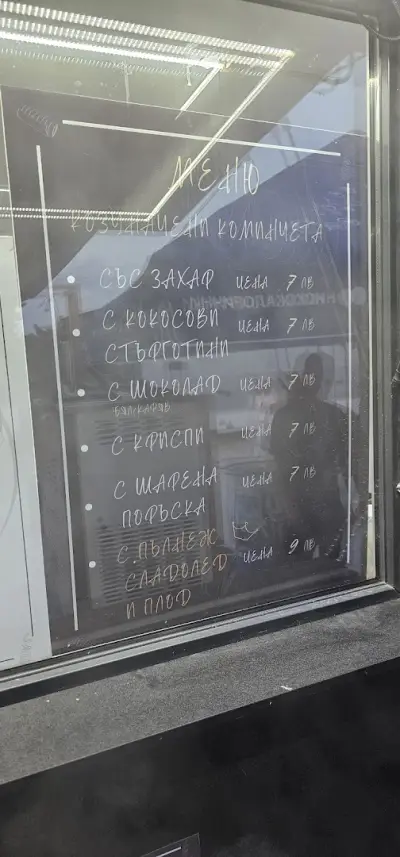 МЕНЮ
КОЗУНАЧЕНИ КОМИНЧЕТА
• СЪС ЗАХАР ЦЕНА 7 ЛВ
• С КОКОСОВИ ЦЕНА 7 ЛВ
СТЪРГОТИНИ
• С ШОКОЛАД ЦЕНА 7 ЛВ
БЯЛ-КАФЯВ
• С КРИСПИ ЦЕНА 7 ЛВ
• С ШАРЕНА ЦЕНА 7 ЛВ
ПОРЪСКА
• С ПЪЛНЕЖ ЦЕНА 9 ЛВ
СЛАДОЛЕД
И ПЛОД